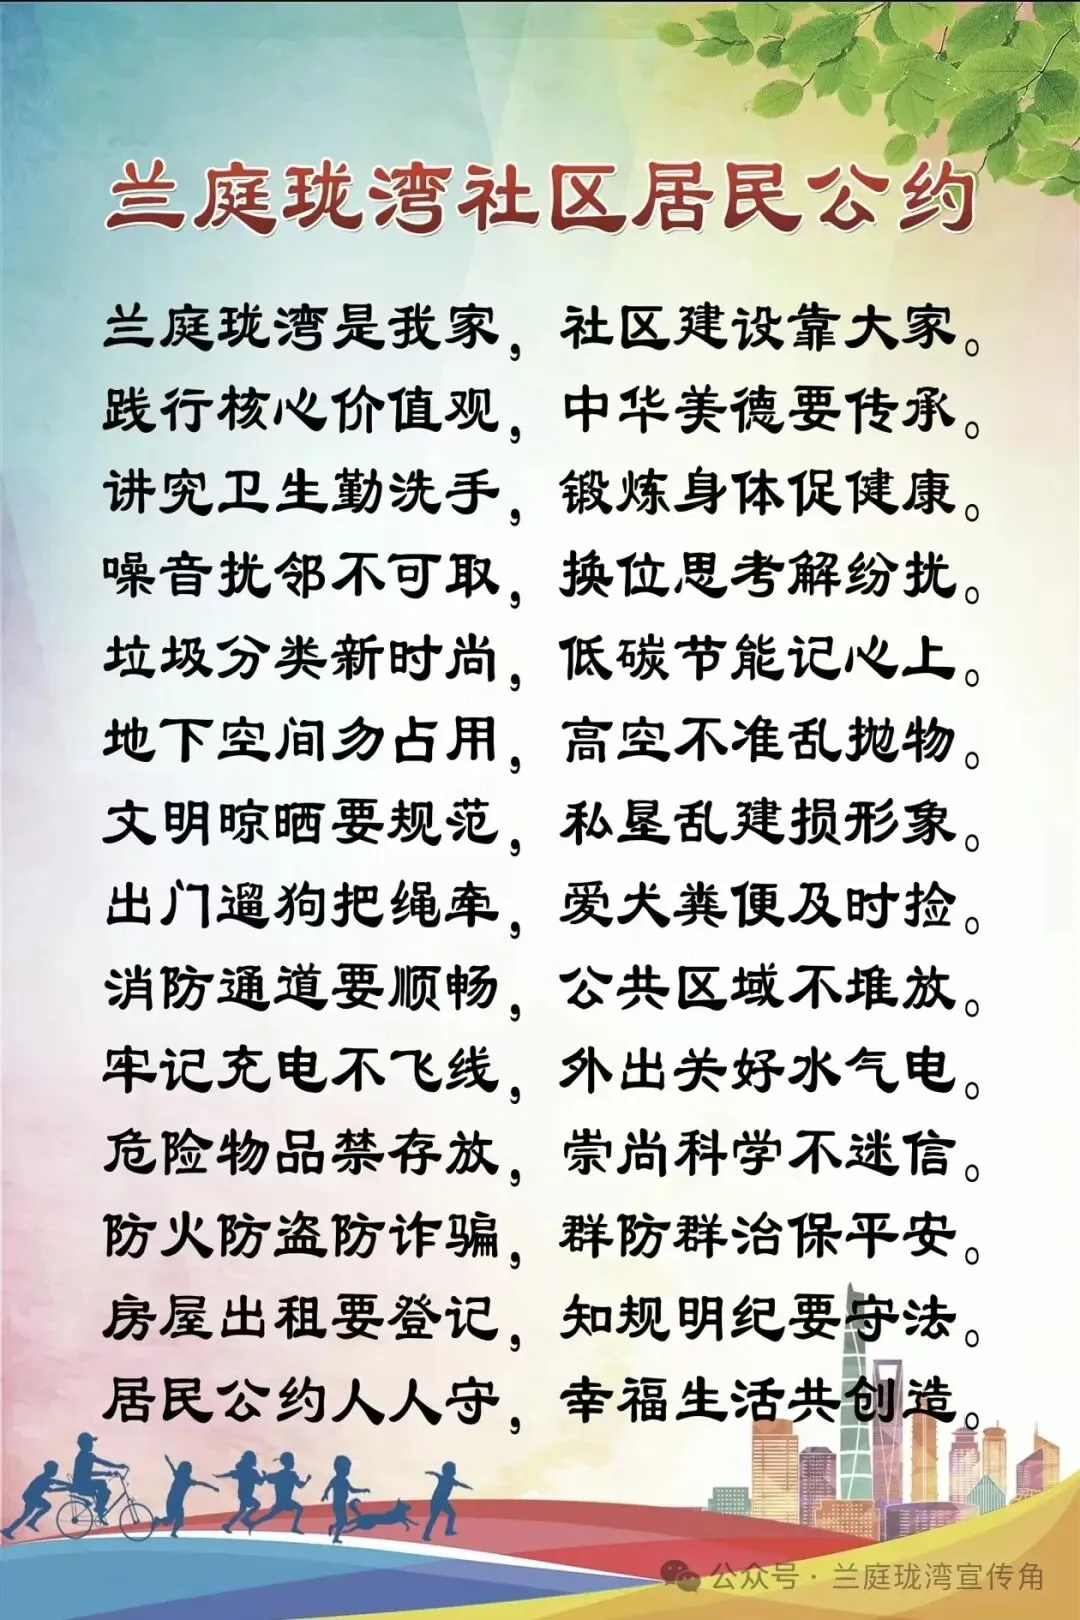 兰庭珑湾社区居民公约
兰庭珑湾是我家，社区建设靠大家。
践行核心价值观，中华美德要传承。
讲究卫生勤洗手，锻炼身体促健康。
噪音扰邻不可取，换位思考解纷扰。
垃圾分类新时尚，低碳节能记心上。
地下空间勿占用，高空不准乱抛物。
文明晾晒要规范，私垦乱建损形象。
出门遛狗把绳牵，爱犬粪便及时捡。
消防通道要顺畅，公共区域不堆放。
牢记充电不飞线，外出关好水气电。
危险物品禁存放，崇尚科学不迷信。
防火防盗防诈骗，群防群治保平安。
房屋出租要登记，知规明纪要守法。
居民公约人人守，幸福生活共创造。
公众号·兰庭珑湾宣传角